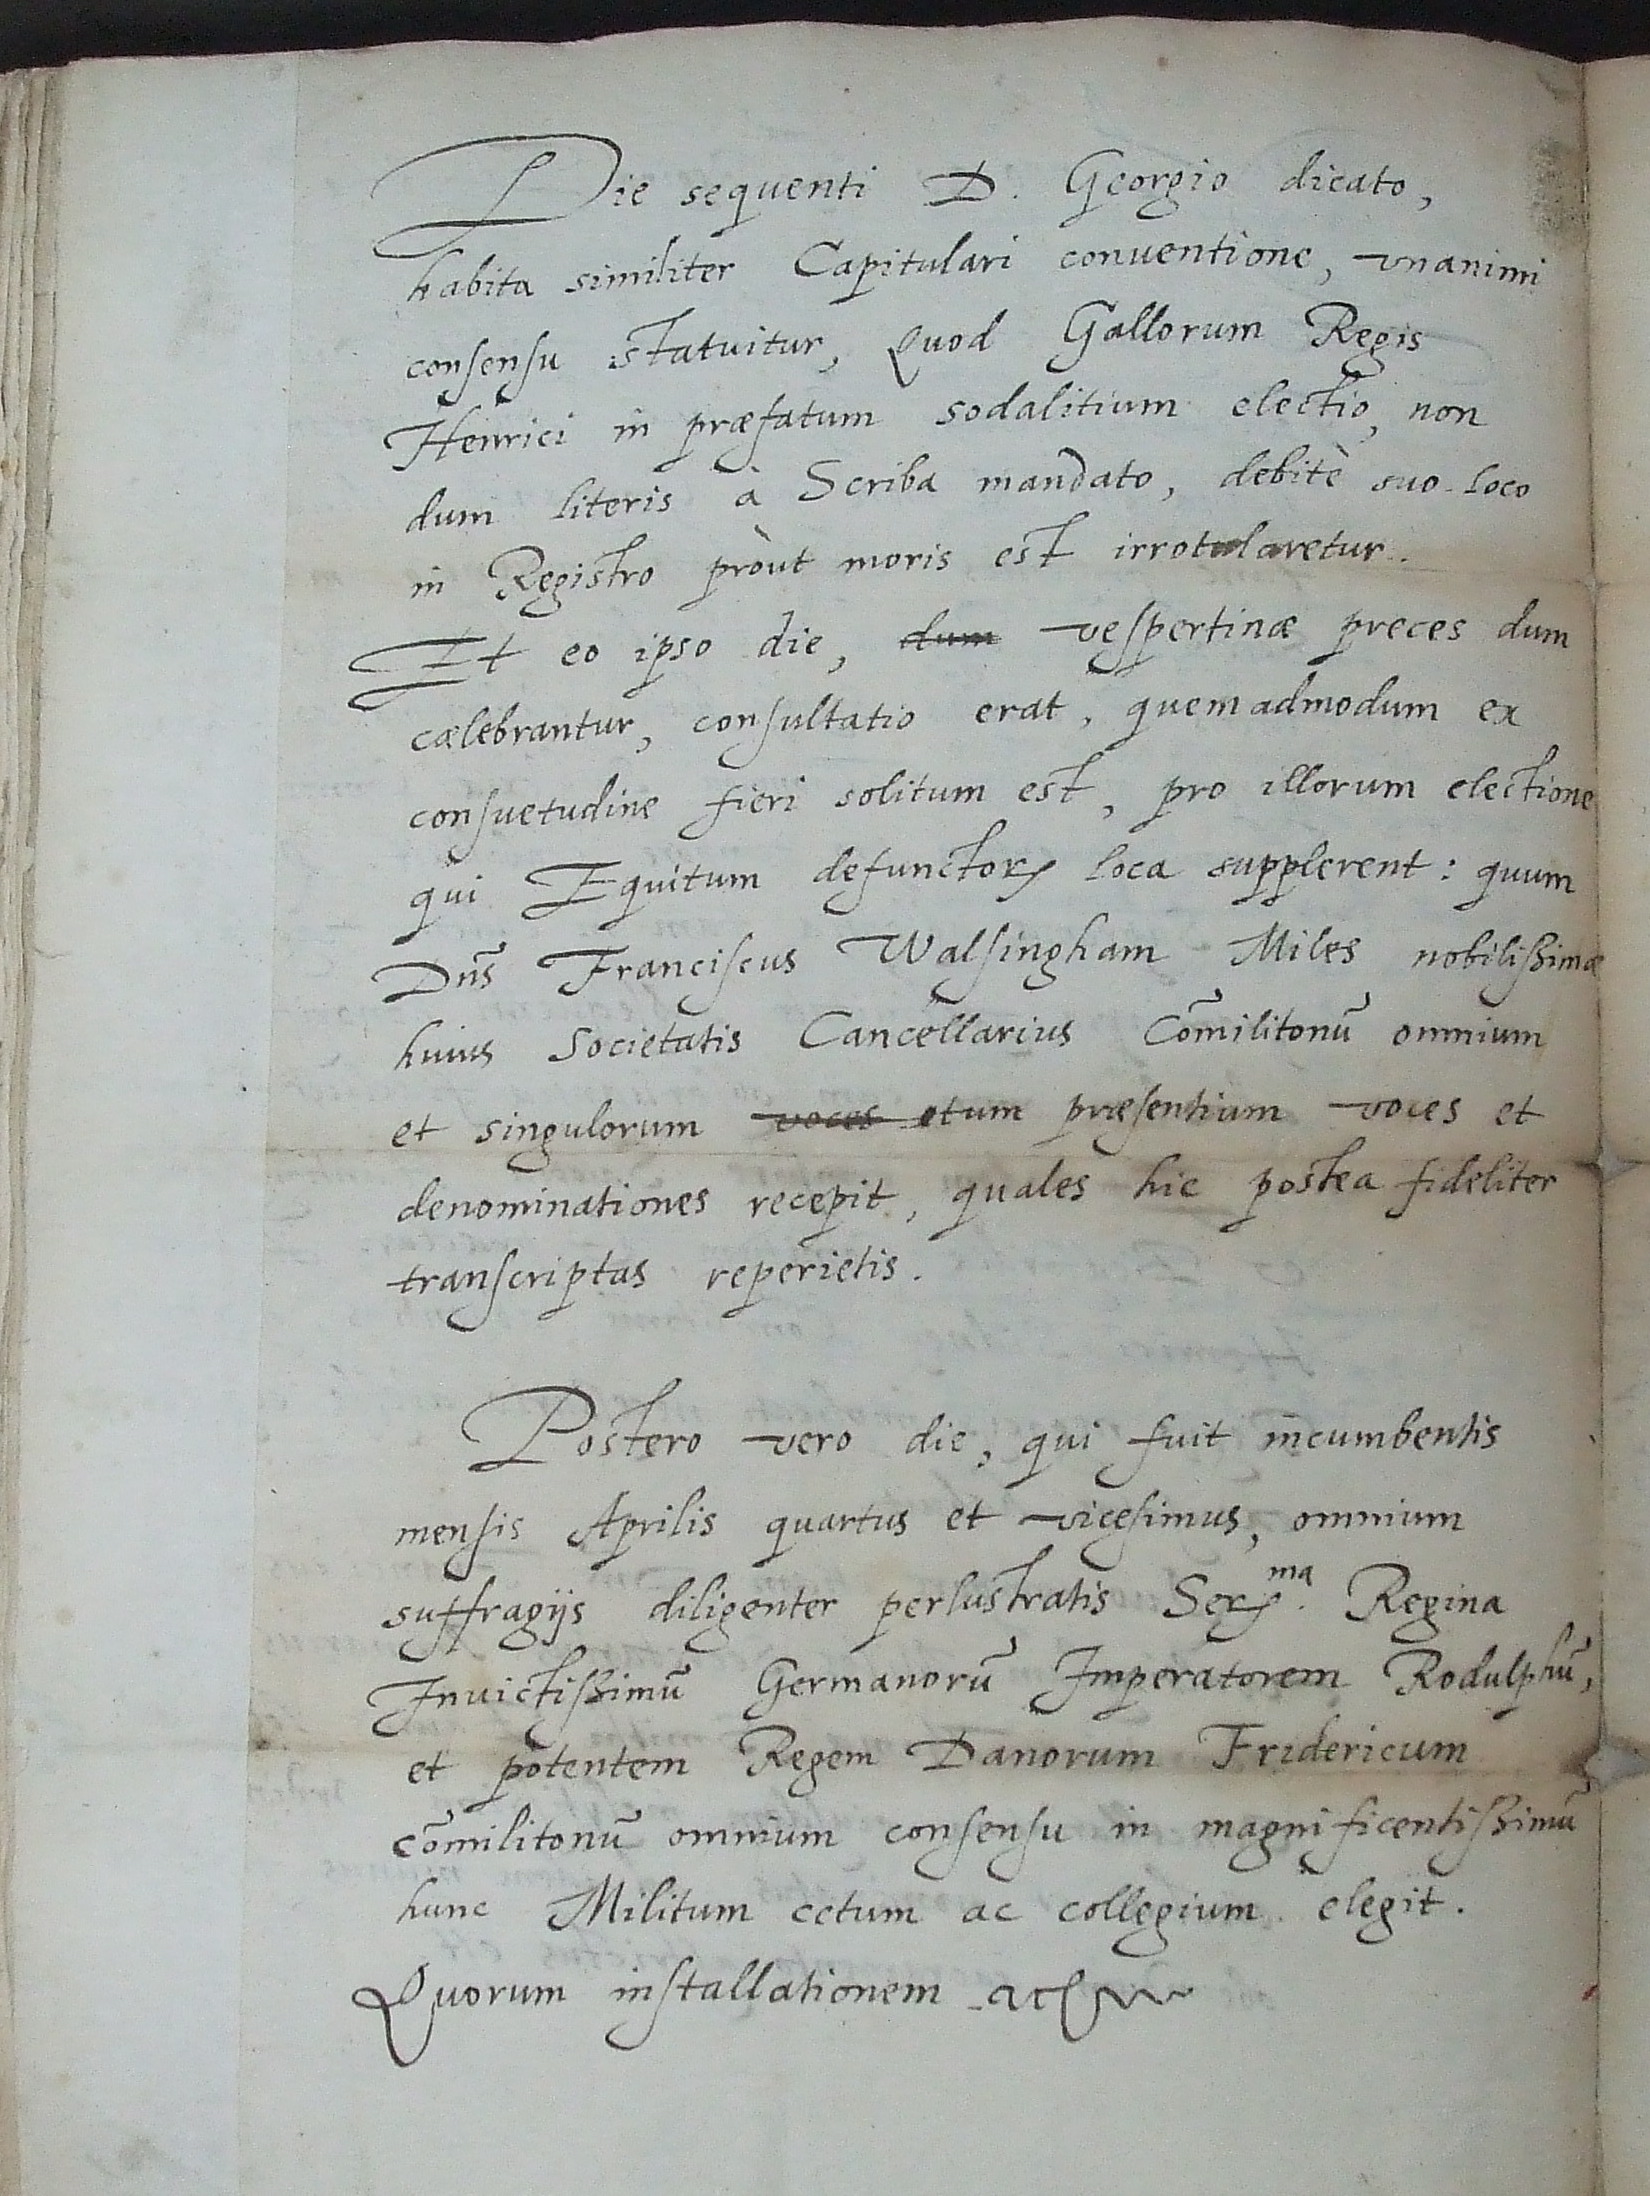 Die sequenti D. Georgio dicato,
habita similiter Capitulari conuentione, vnanimi
consensu statuitur, Quod Gallorum Regis
Henrici in præfatum sodalitium electio, non
dum literis à Scriba mandato, debitè suo loco
in Registro proùt moris est irrotularetur.
Et eo ipso die, dum vespertinæ preces dum
cælebrantur, consultatio erat, quemadmodum ex
consuetudine fieri solitum est, pro illorum electione
qui Equitum defunctorꝝ loca supplerent: quum
Dns̃ Franciscus Walsingham Miles nobilissimæ
huius Societatis Cancellarius Com̃ilitonũ omnium
et singulorum voces etum præsentium voces et
denominationes recepit, quales hic postea fideliter
transcriptas reperietis.
Postero vero die, qui fuit incumbentis
mensis Aprilis quartus et vicesimus, omnium
suffragijs diligenter perlustratis Serꝝ.ma Regina
Inuictissimũ Germanorũ Imperatorem Rodulphũ,
et potentem Regem Danorum Fridericum
com̃ilitonũ omnium consensu in magnificentissimũ
hunc Militum cetum ac collegium elegit.
Quorum installationem